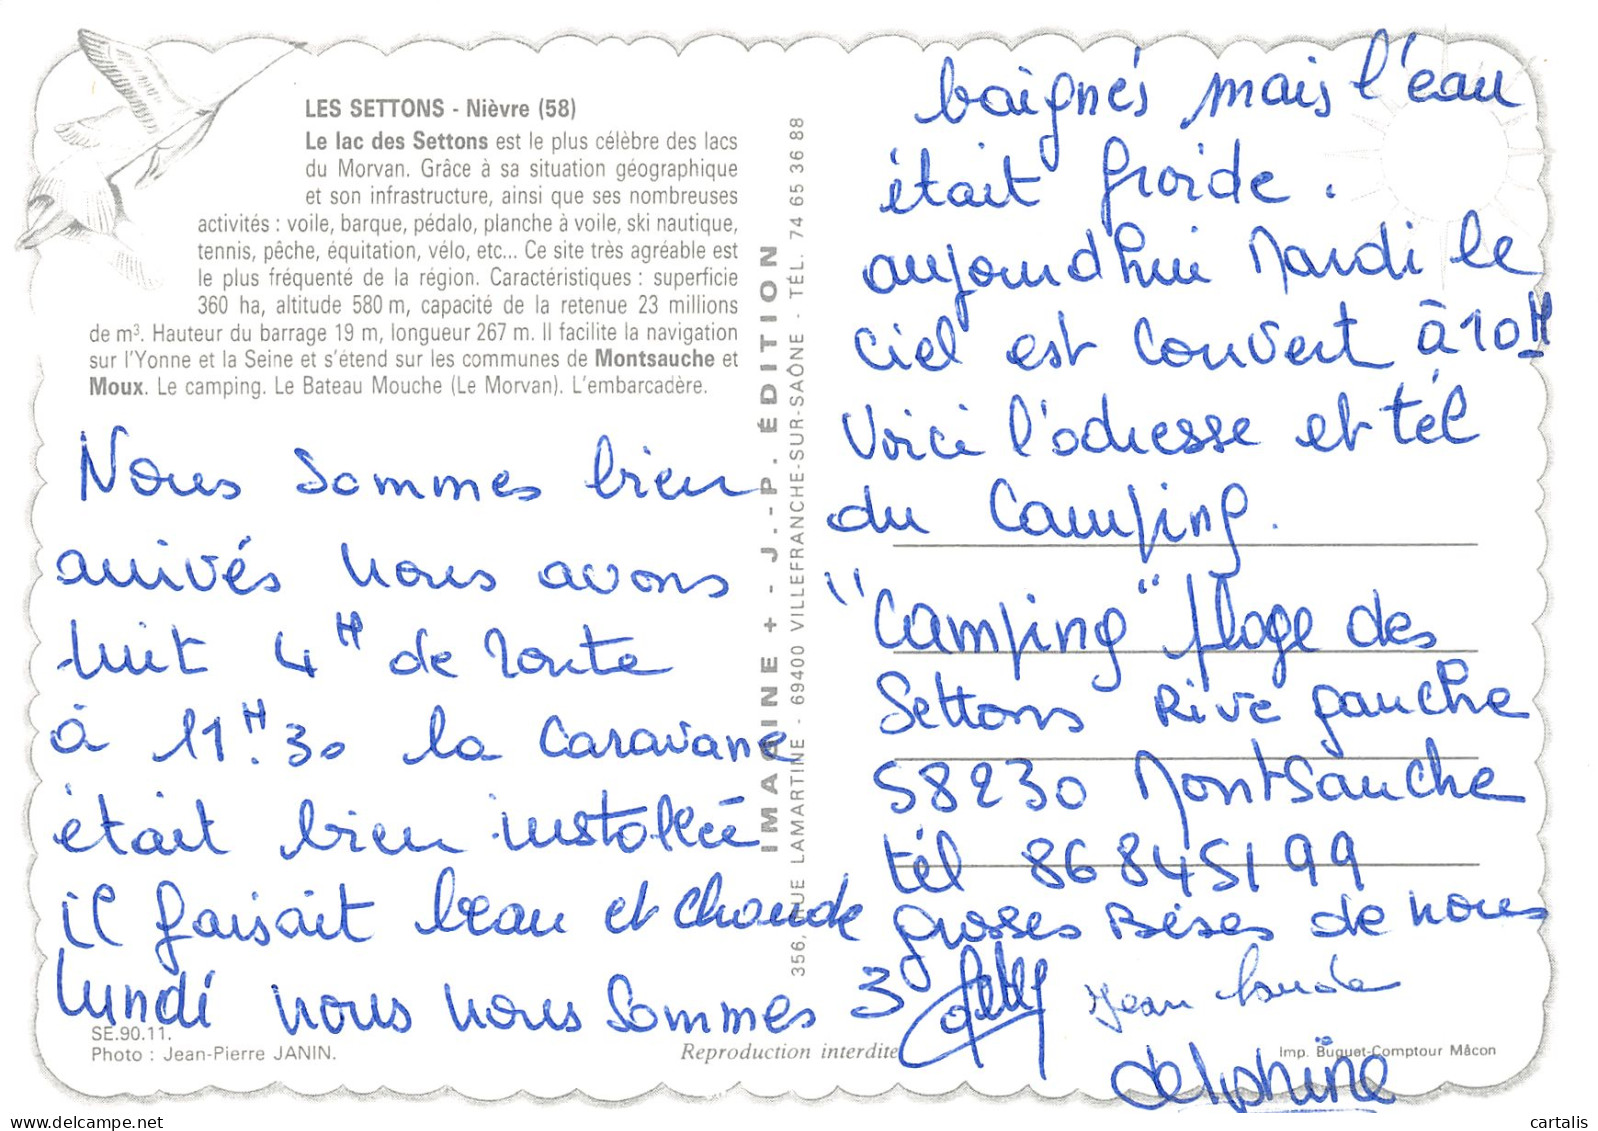 LES SETTONS - Nièvre (58)
Le lac des Settons est le plus célèbre des lacs
du Morvan. Grâce à sa situation géographique
et son infrastructure, ainsi que ses nombreuses
activités : voile, barque, pédalo, planche à voile, ski nautique,
tennis, pêche, équitation, vélo, etc... Ce site très agréable est
le plus fréquenté de la région. Caractéristiques : superficie
360 ha, altitude 580 m, capacité de la retenue 23 millions
de m³. Hauteur du barrage 19 m, longueur 267 m. Il facilite la navigation
sur l'Yonne et la Seine et s'étend sur les communes de Montsauche et
Moux. Le camping. Le Bateau Mouche (Le Morvan). L'embarcadère.
Nous sommes bien
arrivés nous avons
4H de route
à 11H.30 la caravane
était bien installée
il faisait beau et chaude
lundi nous nous sommes
SE.90.11.
Photo : Jean-Pierre JANIN.
Reproduction interdite
IMAGINE + - J.-P. ÉDITION
356, RUE LAMARTINE - 69400 VILLEFRANCHE-SUR-SAÔNE - TÉL. 74 65 36 88
baignés mais l'eau
était froide.
aujourd'hui Mardi le
ciel est couvert à 10H
Voici l'adresse et tél
du Camping.
"Camping" plage des
Settons Rive gauche
58230 Montsauche
tél 86845199
3 grosses Bises de nous
Jean Claude
delphine
Imp. Buguet-Comptour Mâcon
cartalis